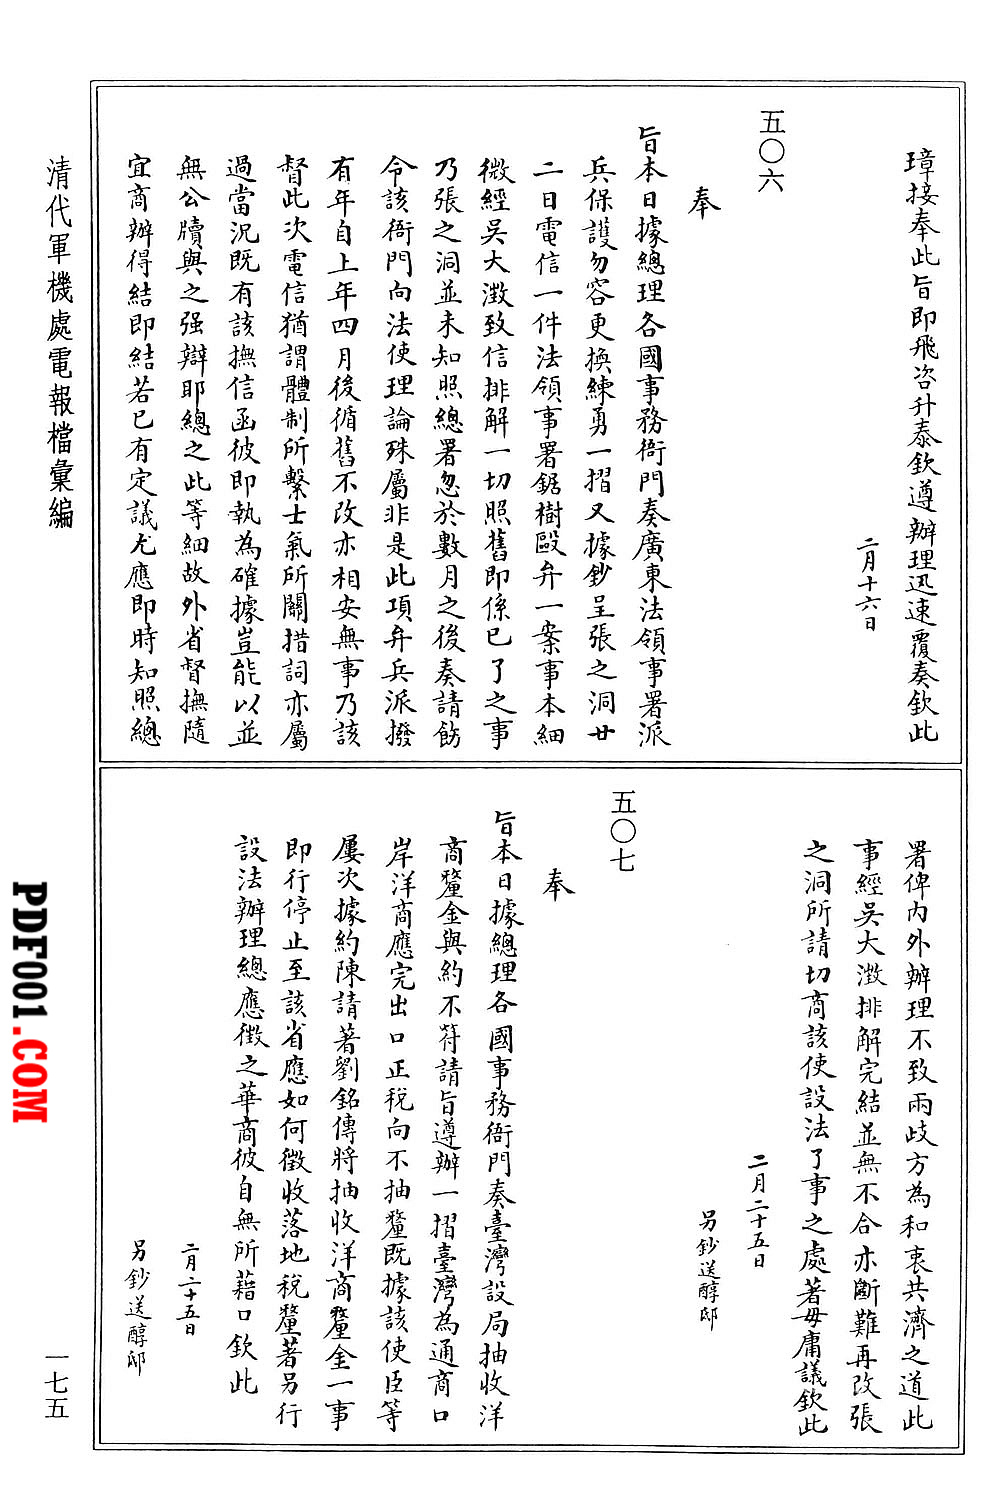 璋接奉此旨即飛咨升泰欽遵辦理迅速覆奏欽此
二月十六日
五〇六
奉
旨本日據總理各國事務衙門奏廣東法領事署派
兵保護勿容更換練勇一摺又據鈔呈張之洞廿
二日電信一件法領事署鋸樹毆弁一案事本細
微經吳大澂致信排解一切照舊即係已了之事
乃張之洞並未知照總署忽於數月之後奏請飭
令該衙門向法使理論殊屬非是此項弁兵派撥
有年自上年四月後循舊不改亦相安無事乃該
督此次電信猶謂體制所繫士氣所關措詞亦屬
過當況既有該撫信函彼即執為確據豈能以並
無公牘與之强辯耶總之此等細故外省督撫隨
宜商辦得結即結若已有定議尤應即時知照總
署俾內外辦理不致兩歧方為和衷共濟之道此
事經吳大澂排解完結並無不合亦斷難再改張
之洞所請切商該使設法了事之處著毋庸議欽此
二月二十五日
另鈔送醇邸
五〇七
奉
旨本日據總理各國事務衙門奏臺灣設局抽收洋
商釐金與約不符請旨遵辦一摺臺灣為通商口
岸洋商應完出口正稅向不抽釐既據該使臣等
屢次據約陳請著劉銘傳將抽收洋商釐金一事
即行停止至該省應如何徵收落地稅釐著另行
設法辦理總應徵之華商彼自無所藉口欽此
二月二十五日
另鈔送醇邸
清代軍機處電報檔彙編
一七五
PDF001.COM